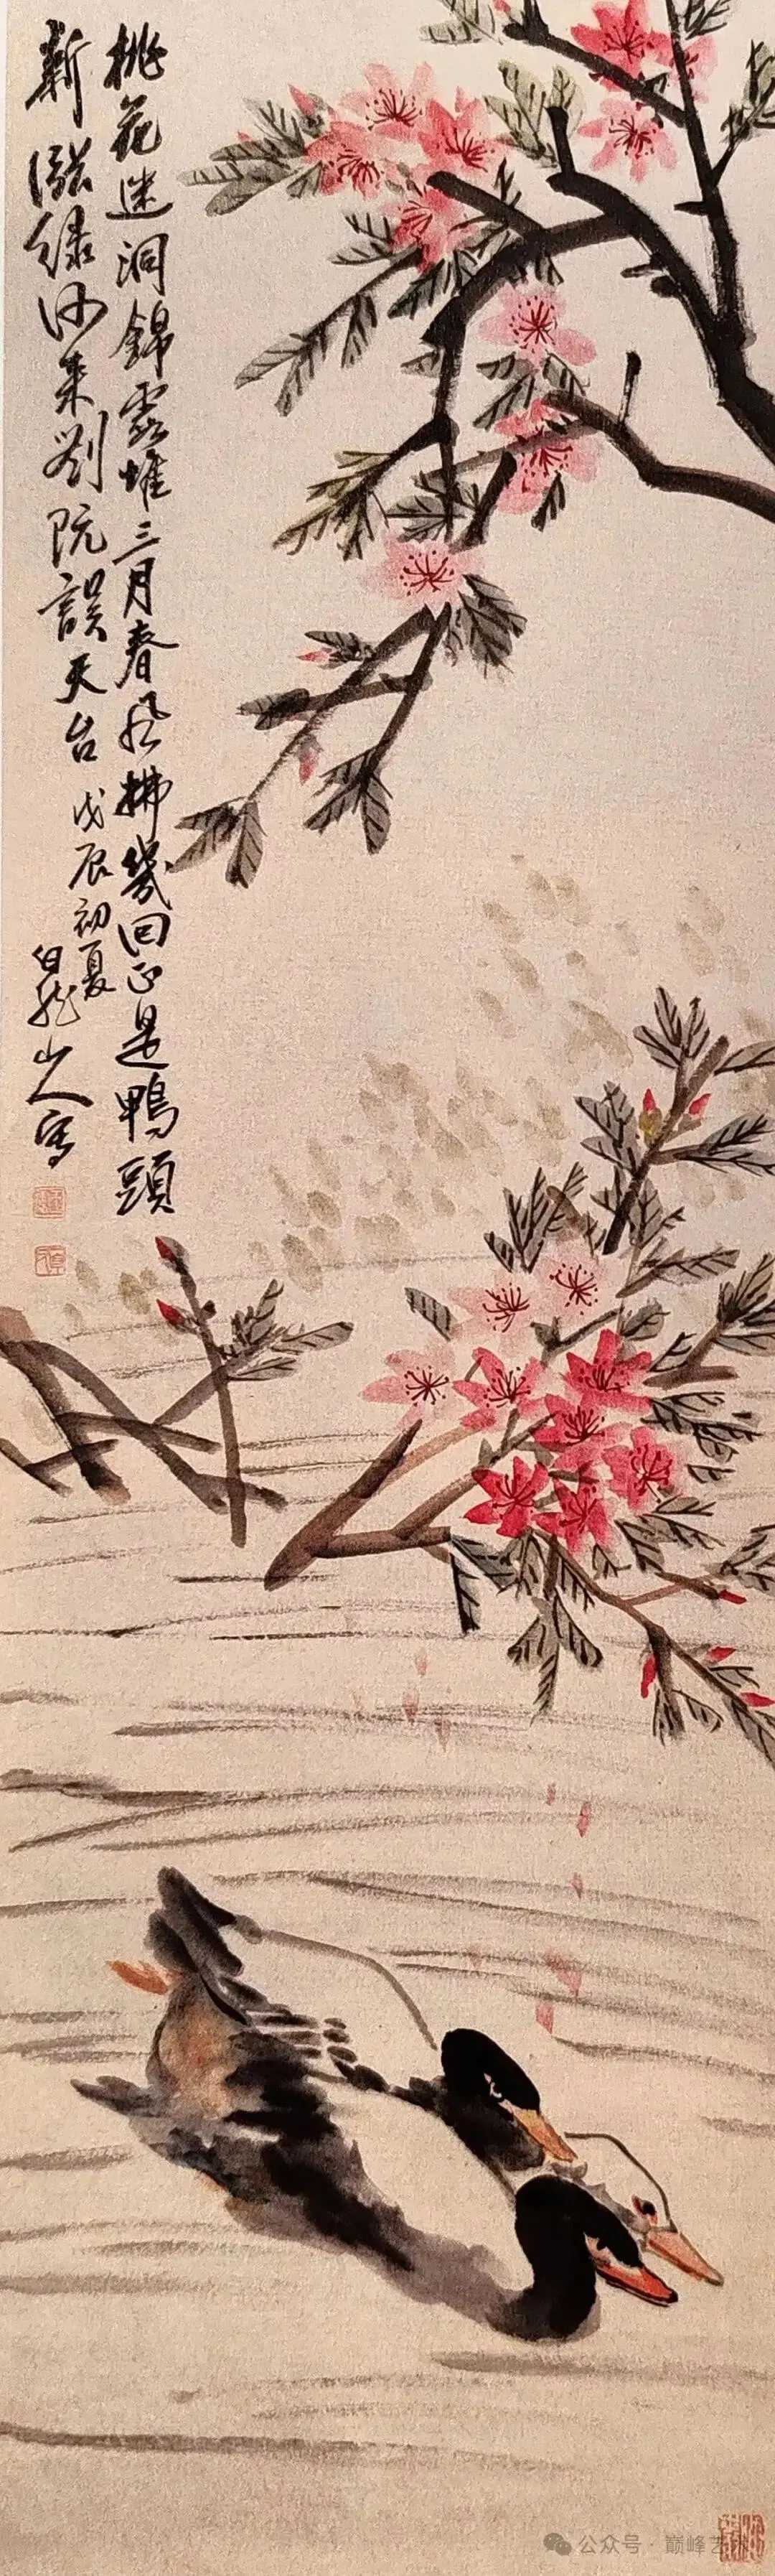 桃花迷洞錦雲堆三月春風拂幾回正是鴨頭
新漲綠汐来劉阮誤天台
戊辰初夏
白龍山人寫
公众号·巅峰艺